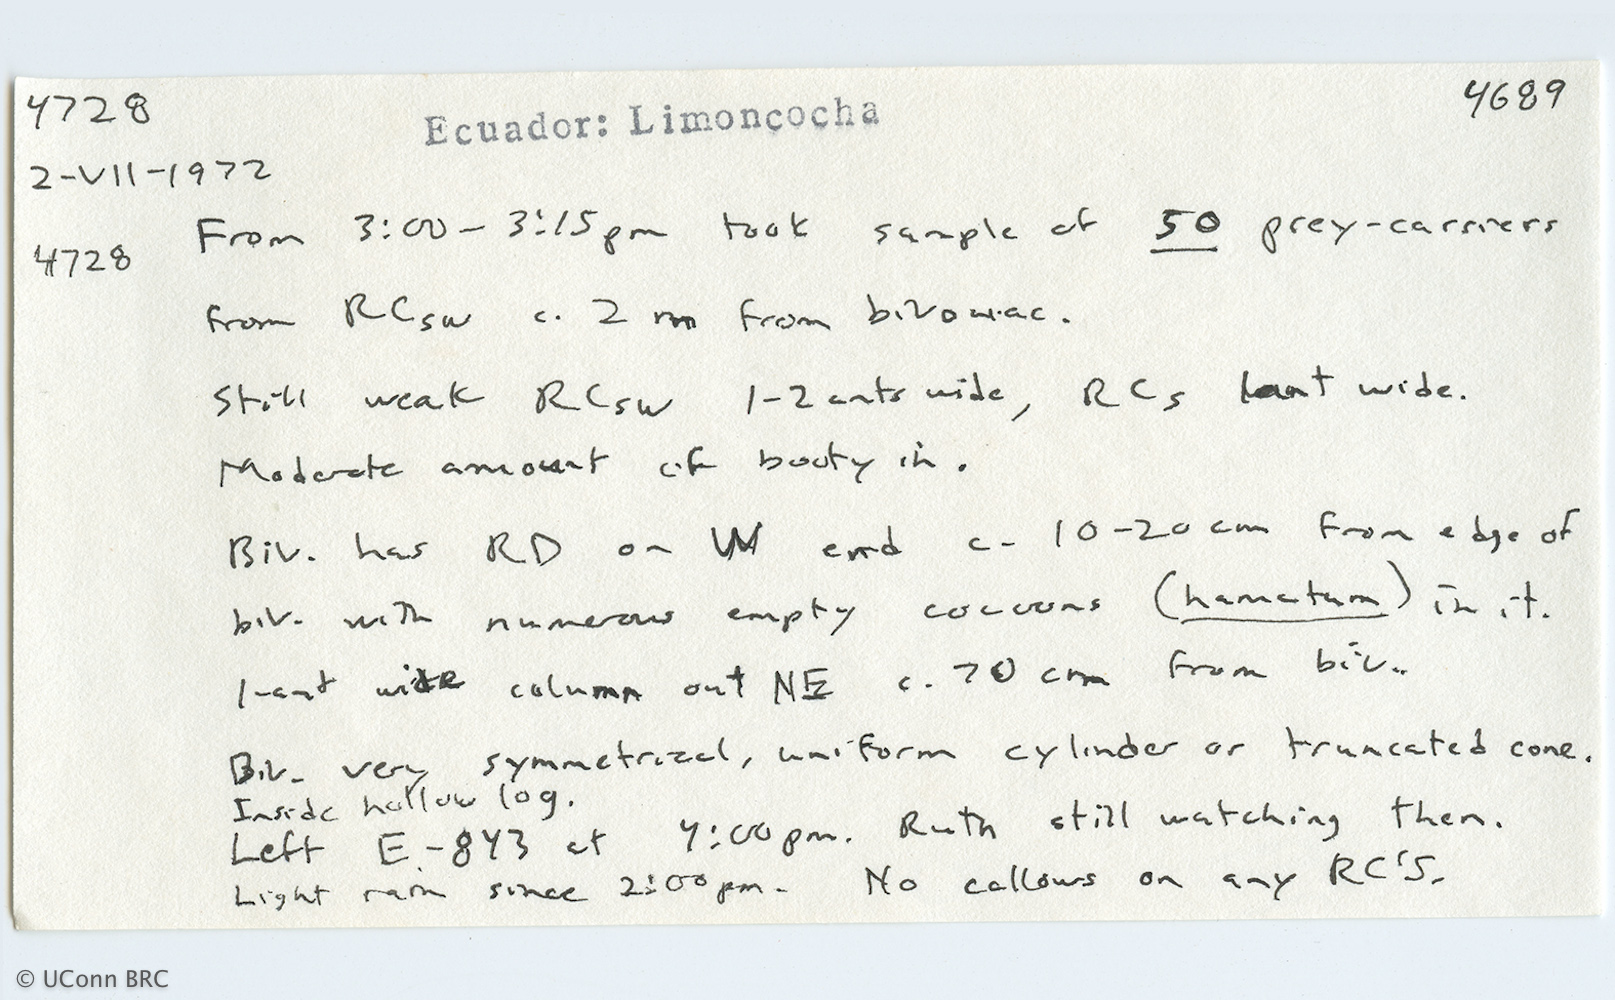 4728
Ecuador: Limoncocha
4689
2-VII-1972
4728 From 3:00-3:15pm took sample of 50 prey-carriers
from RCsw c. 2 m from bivouac.
Still weak RCsw 1-2 ants wide, RCs 1-ant wide.
Moderate amount of booty in.
Biv. has RD on W end c. 10-20 cm from edge of
biv. with numerous empty cocoons (hamatum) in it.
1-ant wide column out NE c. 70 cm from biv.
Biv. very symmetrical, uniform cylinder or truncated cone.
Inside hollow log.
Left E-843 at 4:00pm. Ruth still watching then.
Light rain since 2:00pm. No callows on any RC'S.
© UConn BRC